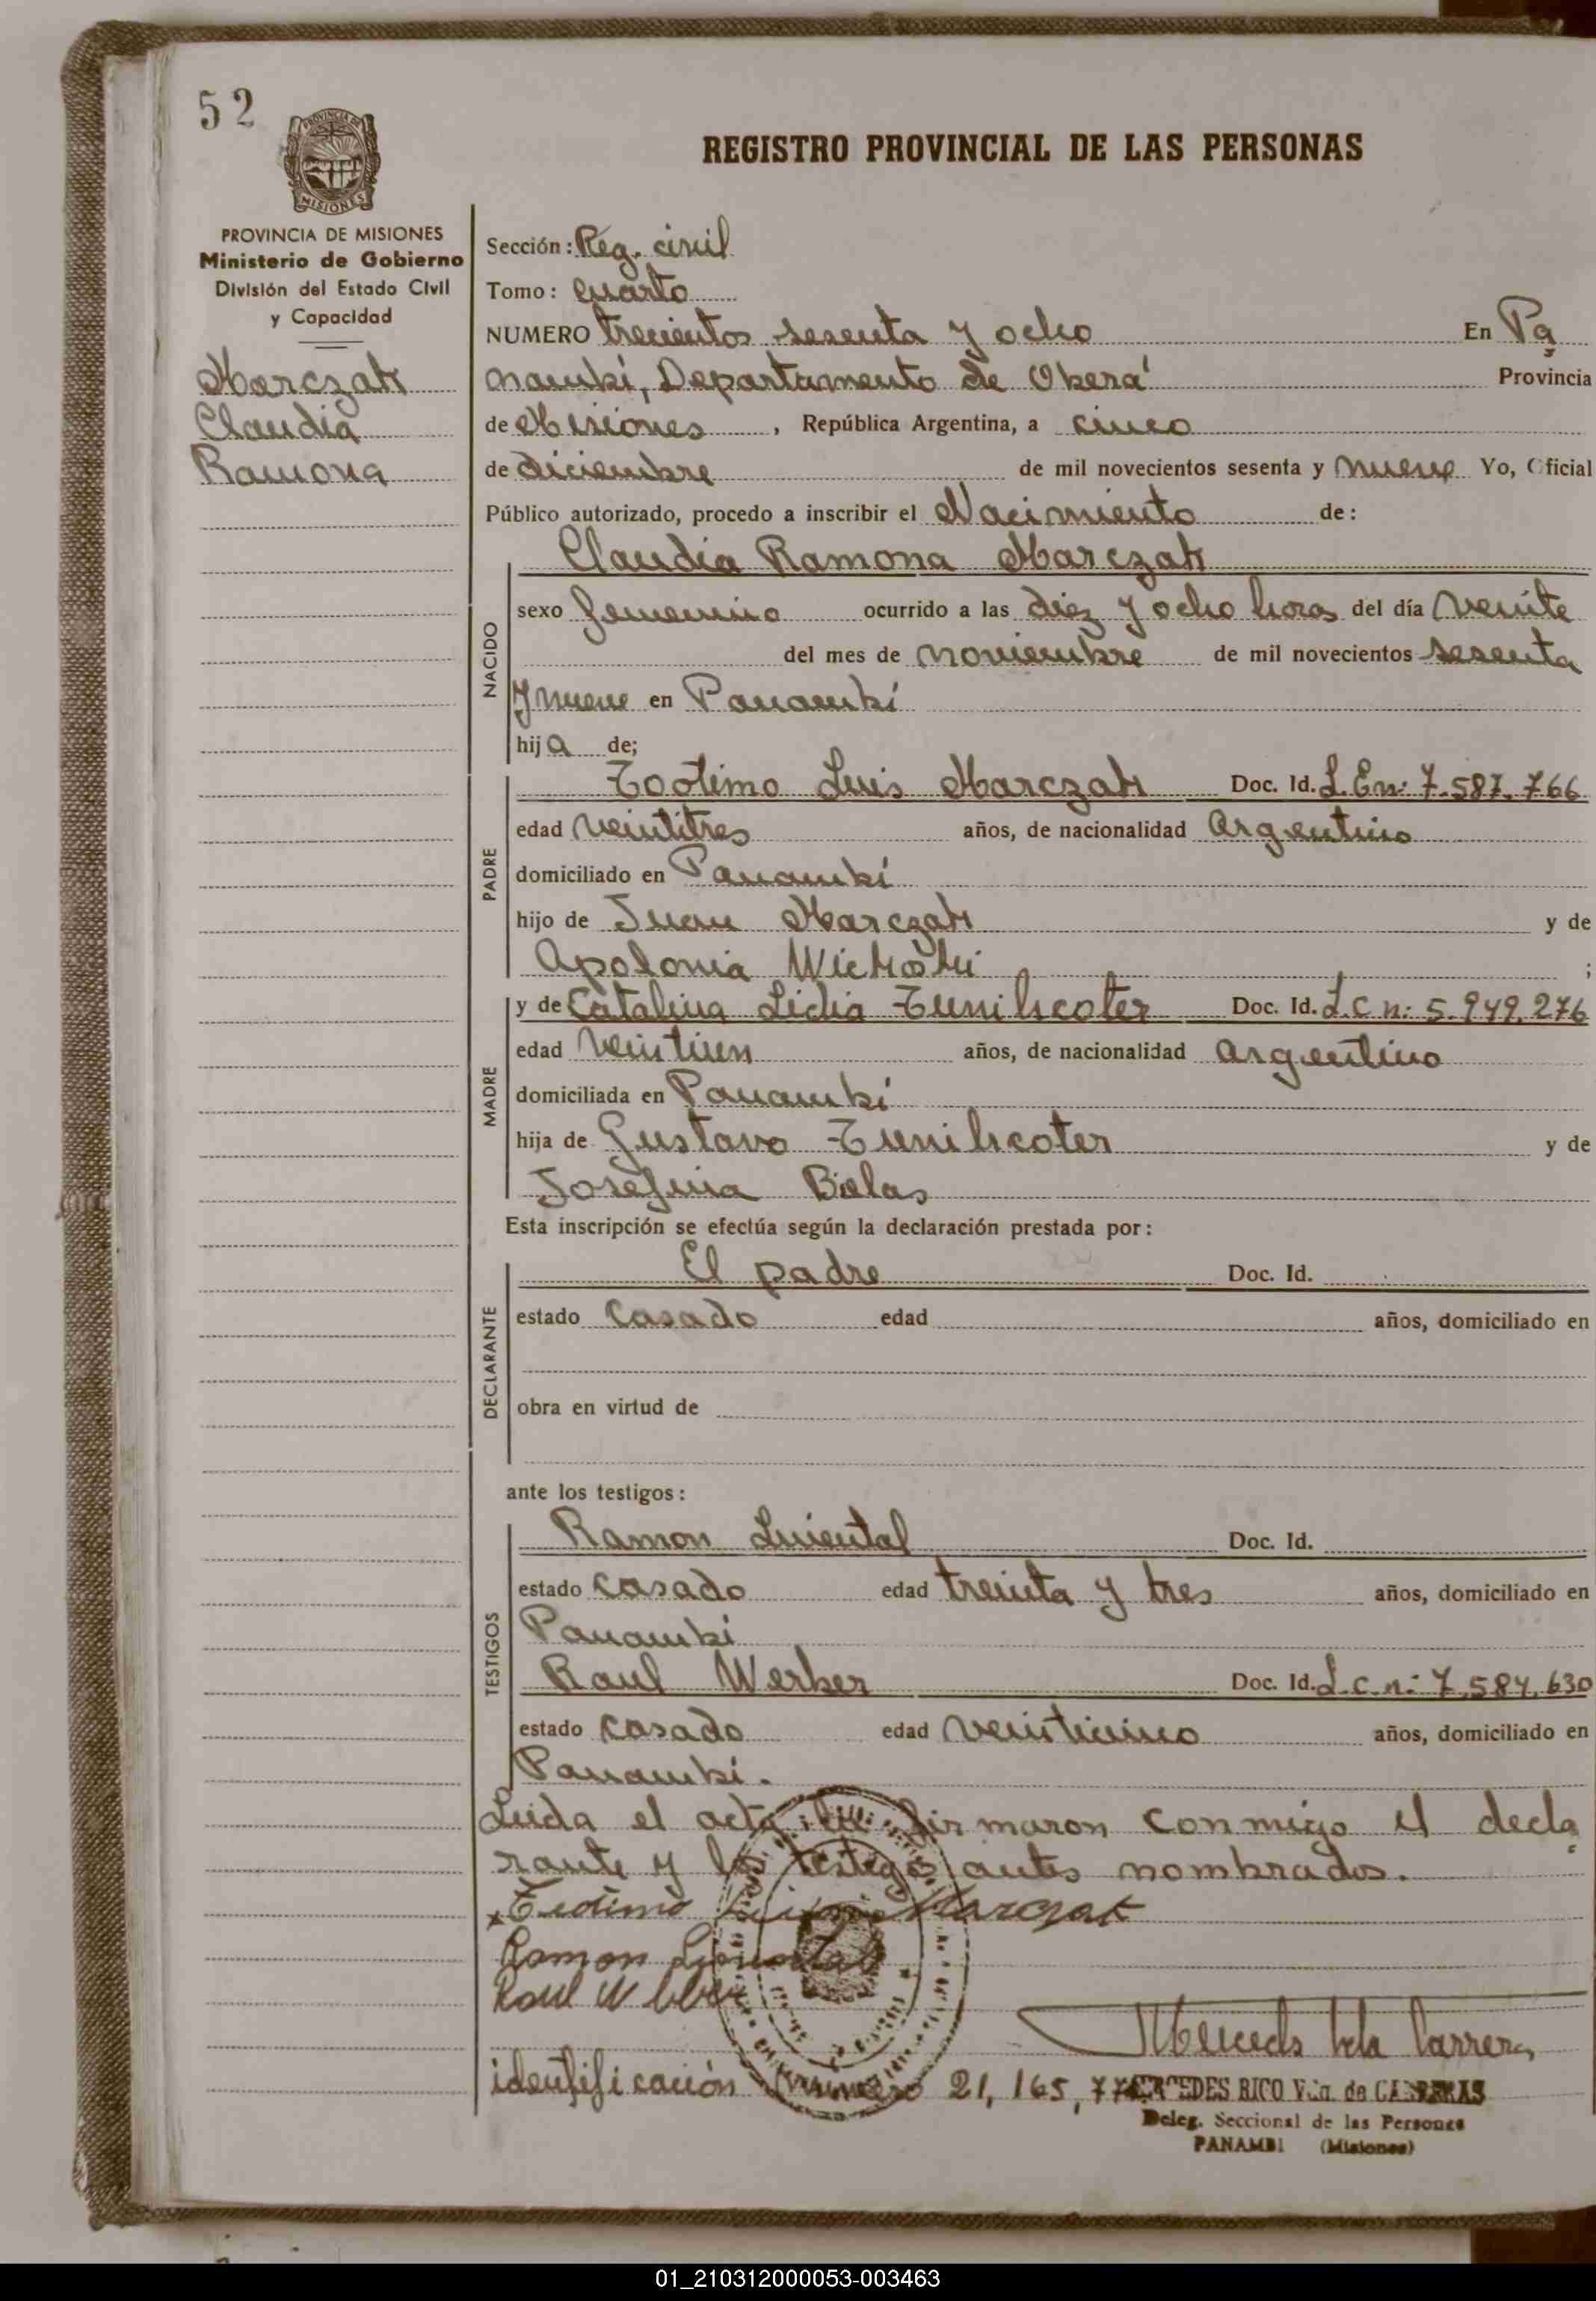 52
PROVINCIA DE MISIONES
REGISTRO PROVINCIAL DE LAS PERSONAS
PROVINCIA DE MISIONES
Ministerio de Gobierno
División del Estado Civil
y Capacidad
Marczak
Claudia
Ramona
Sección: Reg. civil
Tomo: Cuarto
NUMERO trecientos sesenta y ocho En Pa
nambí, Departamento de Oberá Provincia
de Misiones, República Argentina, a cinco
de diciembre de mil novecientos sesenta y nueve Yo, Oficial
Público autorizado, procedo a inscribir el Nacimiento de:
Claudia Ramona Marczak
NACIDO
sexo femenino ocurrido a las diez y ocho horas del día veinte
del mes de noviembre de mil novecientos sesenta
y nueve en Panambí
hija de;
PADRE
Luis Marczak Doc. Id. L.E n: 7.587.766
edad veintitres años, de nacionalidad Argentino
domiciliado en Panambí
hijo de Juan Marczak y de
Apolonia ;
MADRE
y de Catalina Lidia Doc. Id. L.C n: 5.949.276
edad veintiun años, de nacionalidad argentino
domiciliada en Panambí
hija de Gustavo y de
Josefina
Esta inscripción se efectúa según la declaración prestada por:
DECLARANTE
El padre Doc. Id.
estado Casado edad años, domiciliado en
obra en virtud de
ante los testigos:
TESTIGOS
Ramon Doc. Id.
estado casado edad treinta y tres años, domiciliado en
Panambí
Raul Werber Doc. Id. L.C. n: 7.584.630
estado casado edad veinticinco años, domiciliado en
Panambí.
Leida el acta la firmaron conmigo el decla
rante y los testigos antes nombrados.
Luis Marczak
Ramon
Raul
identificación número 21,165,77
MERCEDES RICO Vda. de CARRERAS
Deleg. Seccional de las Personas
PANAMBI (Misiones)
01_210312000053-003463